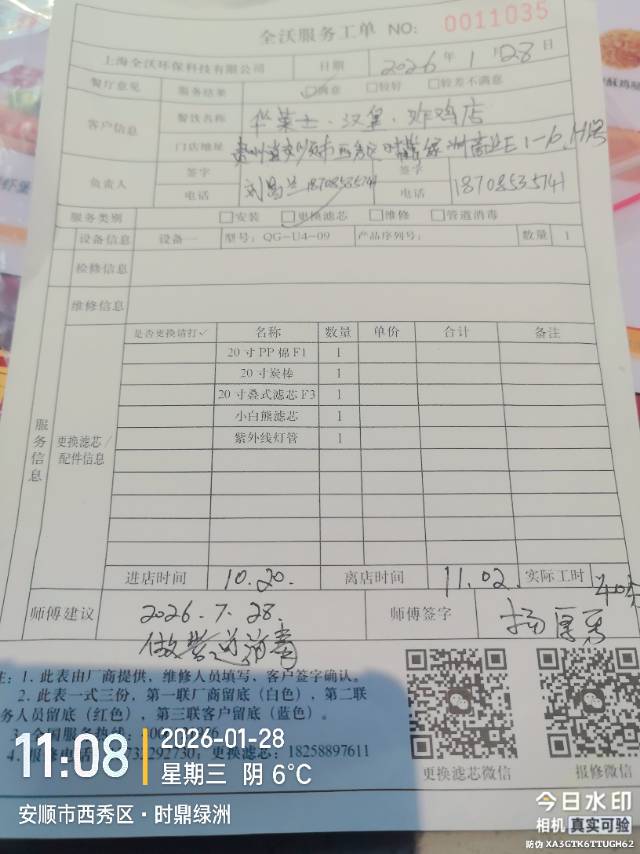 全沃服务工单 NO: 0011035
上海全沃环保科技有限公司 日期 2026年1月28日
餐厅意见 服务结果 满意 较好 较差不满意
客户信息 餐饮名称 华莱士·汉堡·炸鸡店
门店地址 贵州省安顺市西秀区时鼎绿洲商业E1-6,11号
负责人 签字 签字
电话 18708535741 电话 18708535741
服务类别 安装 更换滤芯 维修 管道消毒
设备信息 设备一 型号: QG-U4-09 产品序列号: 数量 1
检修信息
维修信息
服务信息 更换滤芯/配件信息
是否更换请打✓ 名称 数量 单价 合计 备注
20寸PP棉F1 1
20寸炭棒 1
20寸叠式滤芯F3 1
小白熊滤芯 1
紫外线灯管 1
进店时间 10.20. 离店时间 11.02 实际工时
师傅建议 2026.7.28. 做管道消毒 师傅签字
注: 1. 此表由厂商提供, 维修人员填写, 客户签字确认。
2. 此表一式三份, 第一联厂商留底(白色), 第二联
务人员留底(红色), 第三联客户留底(蓝色)。
全国服务热线:
4. 服 电话 732292730; 更换滤芯: 18258897611
更换滤芯微信 报修微信
11:08 2026-01-28
星期三 阴 6℃
安顺市西秀区·时鼎绿洲
今日水印
相机 真实可验
防伪 XA3GTK6TTUGH62